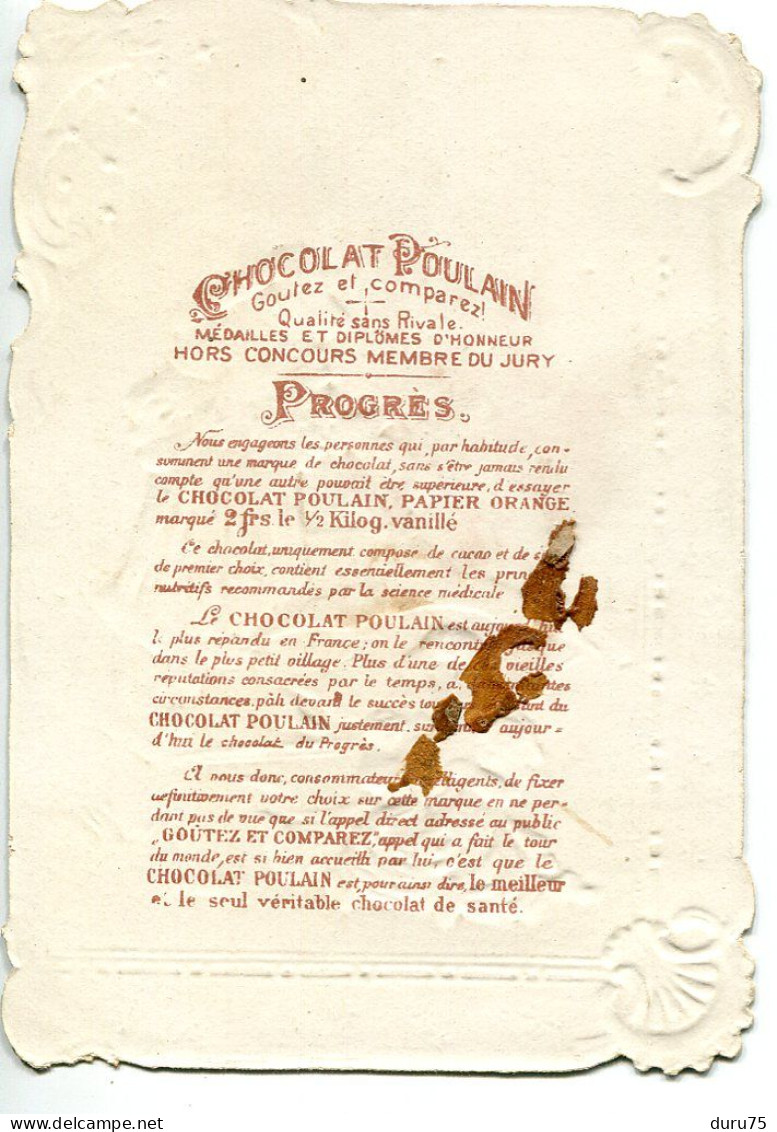 CHOCOLAT POULAIN
Goutez et comparez!
Qualité sans Rivale.
MÉDAILLES ET DIPLÔMES D'HONNEUR
HORS CONCOURS MEMBRE DU JURY
PROGRÈS.
Nous engageons les personnes qui, par habitude, con-
somment une marque de chocolat, sans s'être jamais rendu
compte qu'une autre pouvait être supérieure, d'essayer
le CHOCOLAT POULAIN, PAPIER ORANGE
marqué 2 frs. le ½ Kilog. vanillé
Ce chocolat, uniquement compose de cacao et de
de premier choix, contient essenciellement les
nutritifs recommandés par la science médicale
Le CHOCOLAT POULAIN est
le plus repandu en France; on le
dans le plus petit village. Plus d'une de vieilles
réputations consacrées par le temps, a,
circonstances, pâli devant le succès du
CHOCOLAT POULAIN justement, aujour-
d'hui le chocolat du Progrès.
A vous donc, de fixer
definitivement votre choix sur cette marque en ne per-
dant pas de vue que si l'appel direct adressé au public
„GOÛTEZ ET COMPAREZ," appel qui a fait le tour
du monde, est si bien accueilli par lui, c'est que le
CHOCOLAT POULAIN est, pour ainsi dire, le meilleur
et le seul véritable chocolat de santé.
delcampe.net
duru75